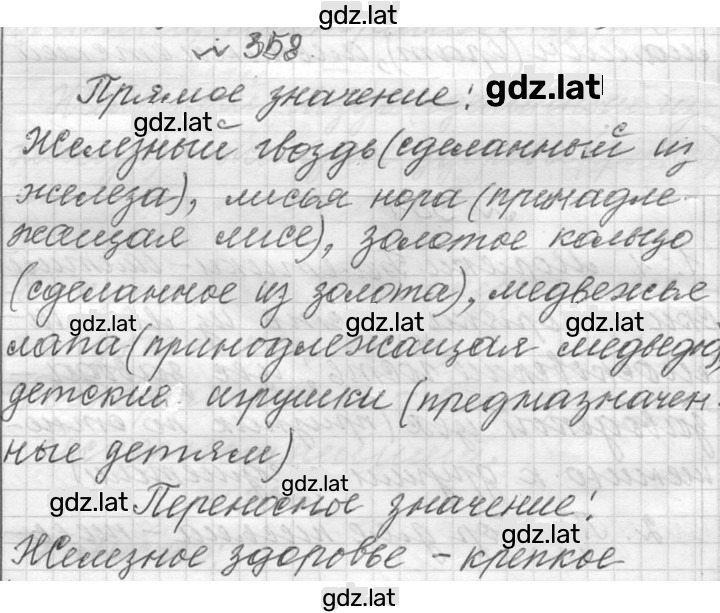 gdz.lat
№ 358.
Прямое значение: gdz.lat
gdz.lat
Железный гвоздь (сделанный из
железа), лисья нора (принадле-
жащая лисе), золотое кольцо
(сделанное из золота), медвежье
gdz.lat gdz.lat gdz.lat
лапа (принодлежащая медведю),
детские игрушки (предмазначен-
ные детям)
gdz.lat
gdz.lat Переносное значение:
gdz.lat
Железное здоровье - крепкое
gdz.lat